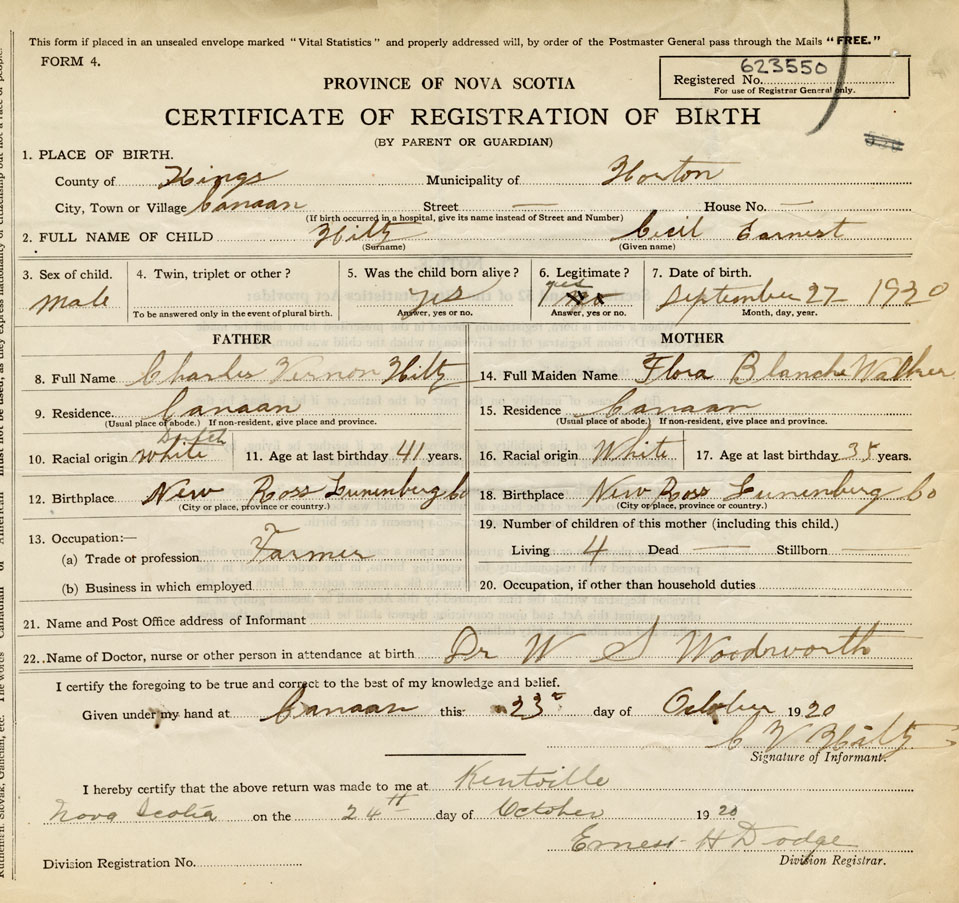 This form if placed in an unsealed envelope marked "Vital Statistics" and properly addressed will, by order of the Postmaster General pass through the Mails "FREE."
FORM 4.
623550
Registered No.
For use of Registrar General only.
PROVINCE OF NOVA SCOTIA
CERTIFICATE OF REGISTRATION OF BIRTH
(BY PARENT OR GUARDIAN)
1. PLACE OF BIRTH.
County of Kings Municipality of Horton
City, Town or Village Canaan Street — House No. —
(If birth occurred in a hospital, give its name instead of Street and Number)
2. FULL NAME OF CHILD Hiltz Cecil Earnest
(Surname) (Given name)
3. Sex of child. 4. Twin, triplet or other? 5. Was the child born alive? 6. Legitimate? 7. Date of birth.
male yes yes September 27 1920
To be answered only in the event of plural birth. Answer, yes or no. Answer, yes or no. Month, day, year.
FATHER MOTHER
8. Full Name Charles Vernon Hiltz 14. Full Maiden Name Flora Blanche Walker
9. Residence. Canaan 15. Residence Canaan
(Usual place of abode.) If non-resident, give place and province. (Usual place of abode.) If non-resident, give place and province.
Dutch
10. Racial origin white 11. Age at last birthday 41 years. 16. Racial origin White 17. Age at last birthday 35 years.
12. Birthplace New Ross Lunenberg Co 18. Birthplace New Ross Lunenberg Co
(City or place, province or country.) (City or place, province or country.)
19. Number of children of this mother (including this child.)
13. Occupation:—
(a) Trade or profession Farmer Living 4 Dead — Stillborn —
(b) Business in which employed 20. Occupation, if other than household duties
21. Name and Post Office address of Informant
22. Name of Doctor, nurse or other person in attendance at birth Dr W S Woodsworth
I certify the foregoing to be true and correct to the best of my knowledge and belief.
Given under my hand at Canaan this 23 day of October 1920
C V Hiltz
Signature of Informant.
I hereby certify that the above return was made to me at Kentville
Nova Scotia on the 24th day of October 1920
Ernest H Dodge
Division Registration No. Division Registrar.